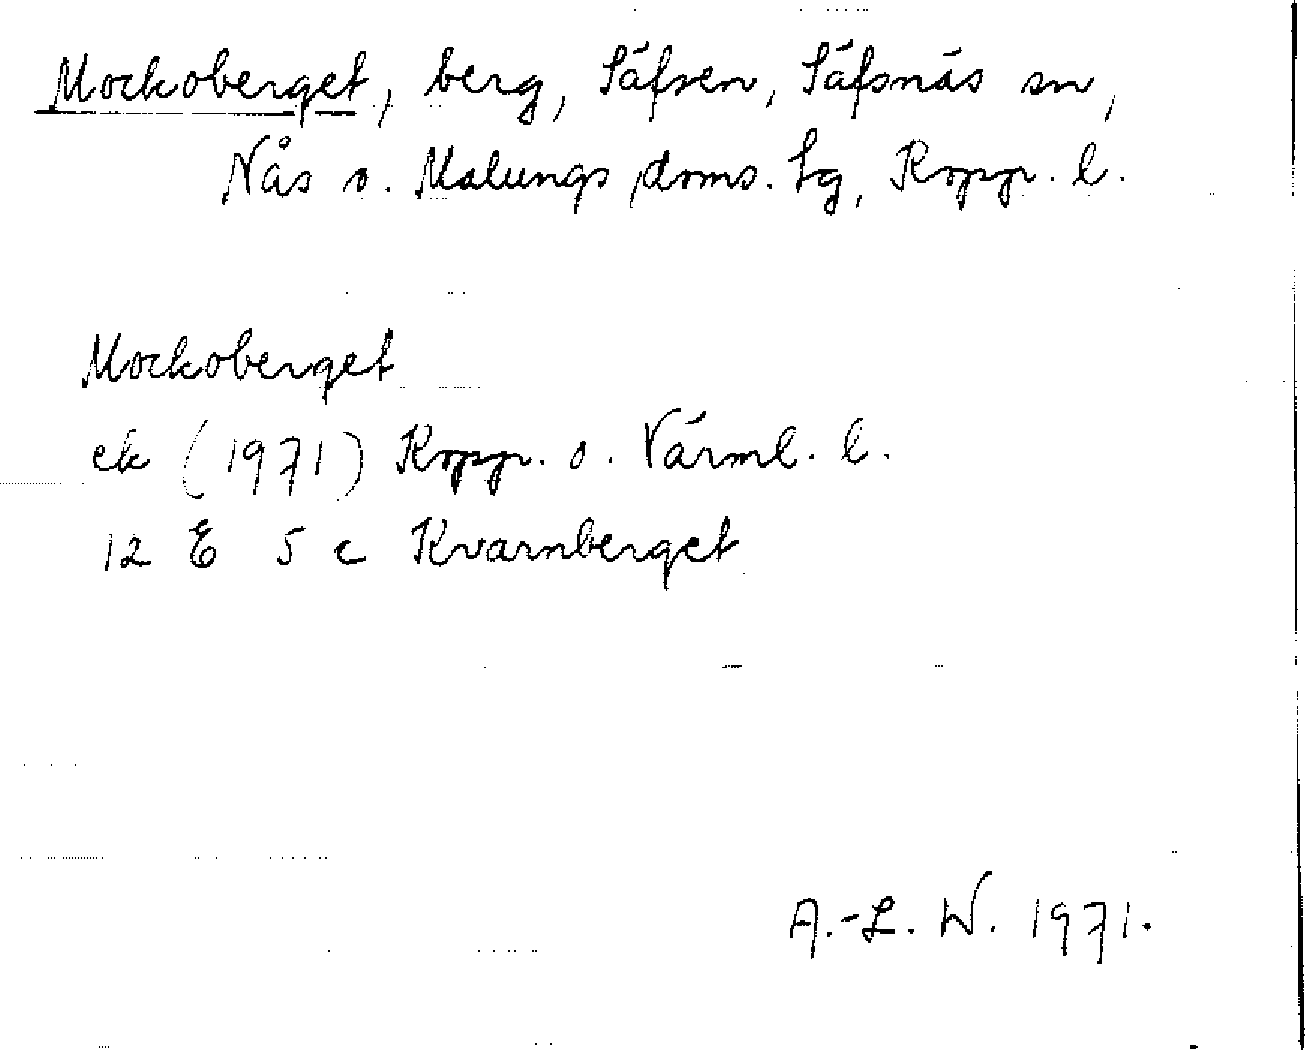 Mockoberget, berg, Säfsen, Säfsnäs sn,
Nås o. Malungs doms. lg, Kopp. l.
Mockoberget
ek (1971) Kopp. o. Värml. l.
12 E 5 c Kvarnberget
A.-L. W. 1971.